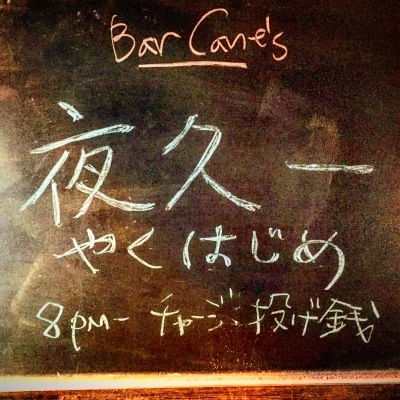 Bar Cane's
夜久一
やくはじめ
8pm- チャージ:投げ銭